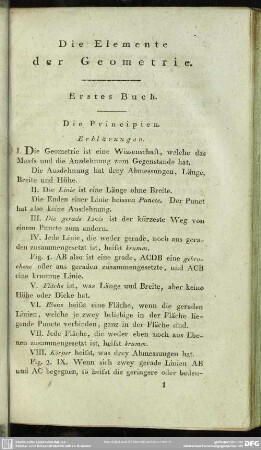 Die Elemente
der Geometrie.
Erstes Buch.
Die Principien.
Erklärungen.
I. Die Geometrie ist eine Wissenschaft, welche das
Maass und die Ausdehnung zum Gegenstande hat.
Die Ausdehnung hat drey Abmessungen, Länge,
Breite und Höhe.
II. Die Linie ist eine Länge ohne Breite.
Die Enden einer Linie heissen Puncte. Der Punct
hat also keine Ausdehnung.
III. Die gerade Linie ist der kürzeste Weg von
einem Puncte zum andern.
IV. Jede Linie, die weder gerade, noch aus gera-
den zusammengesetzt ist, heißt krumm.
Fig. 1. AB also ist eine grade, ACDB eine gebro-
chene oder aus geraden zusammengesetzte, und ACB
eine krumme Linie.
V. Fläche ist, was Länge und Breite, aber keine
Höhe oder Dicke hat.
VI. Ebene heißt eine Fläche, wenn die geraden
Linien, welche je zwey beliebige in der Fläche lie-
gende Puncte verbinden, ganz in der Fläche sind.
VII. Jede Fläche, die weder eben noch aus Ebe-
nen zusammengesetzt ist, heißt krumm.
VIII. Körper heißt, was drey Abmessungen hat.
Fig. 2. IX. Wenn sich zwey gerade Linien AB
und AC begegnen, so heißt die geringere oder bedeu-
1